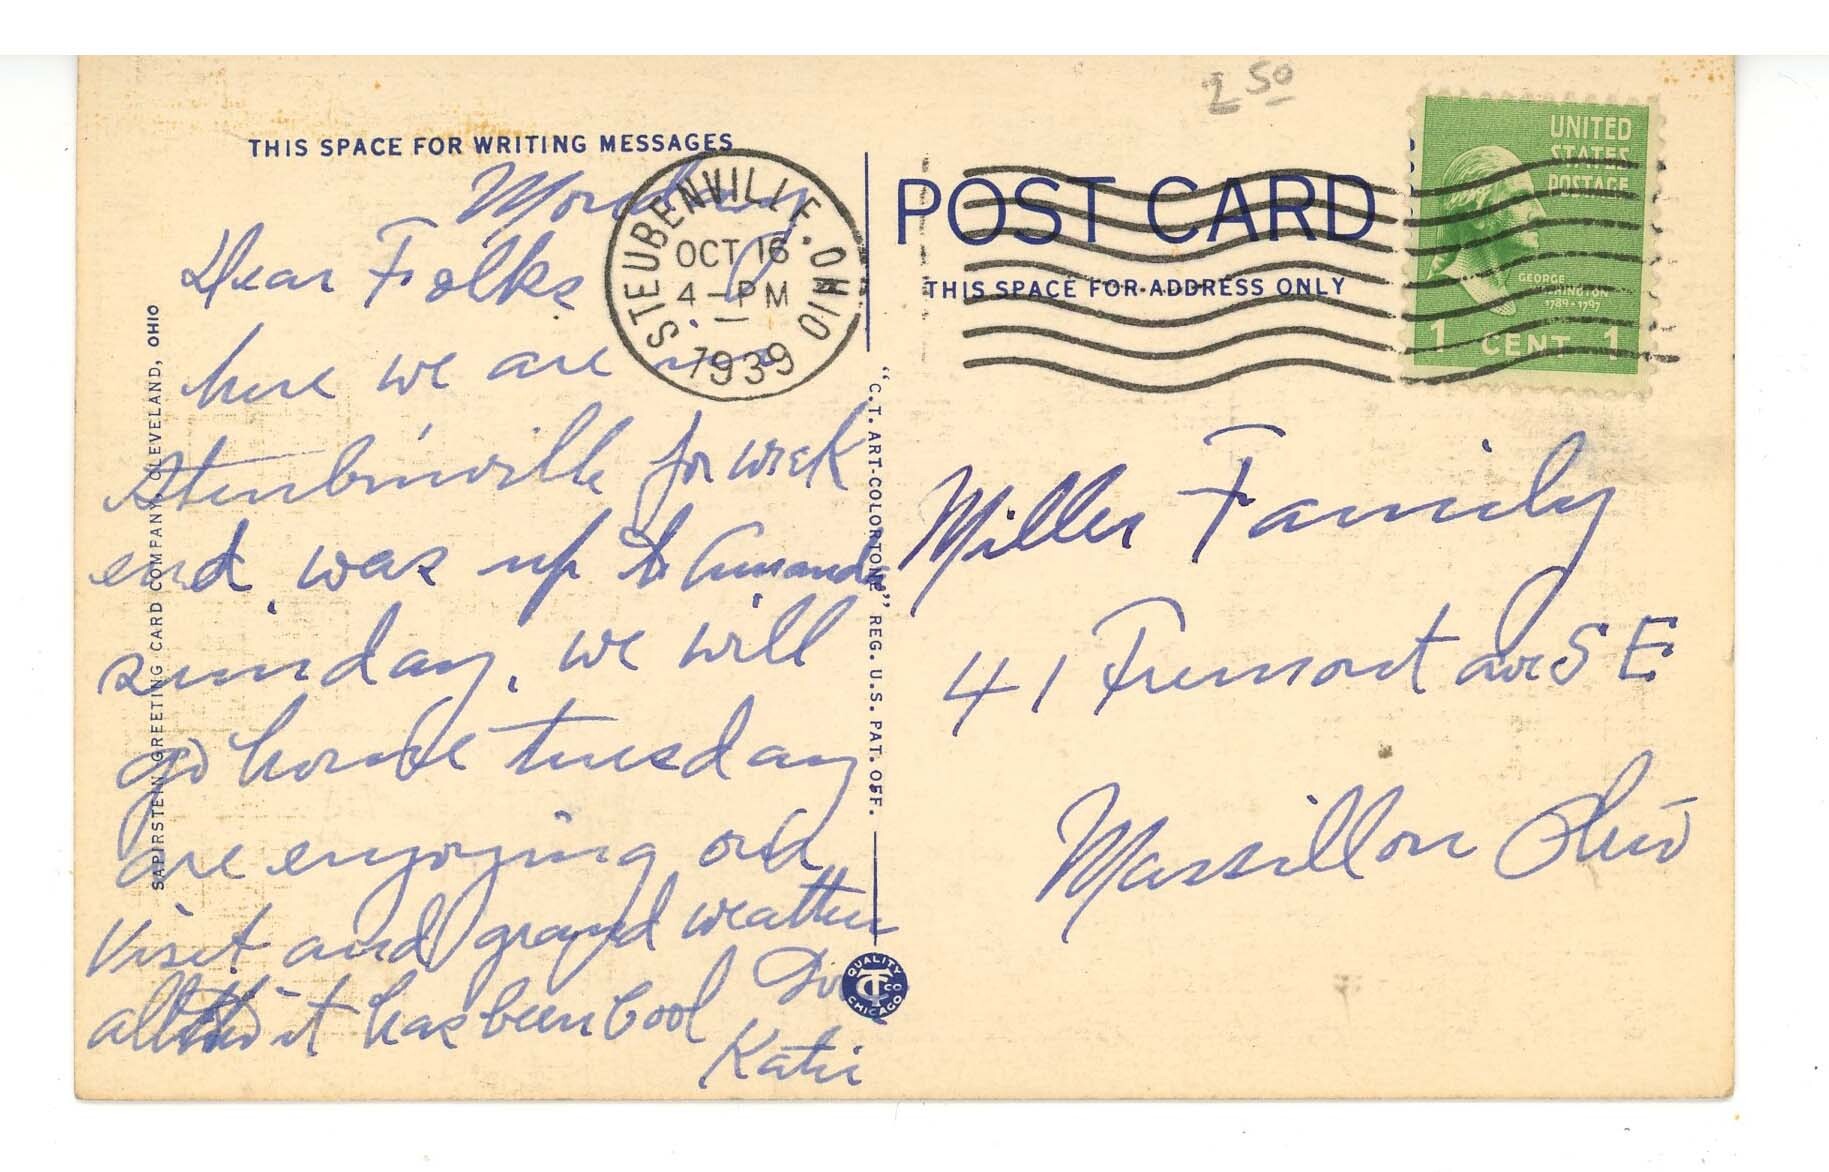 2 50
THIS SPACE FOR WRITING MESSAGES
Monday
Dear Folks
here we are in
Steubinville for week
end, was up to Amanda
sunday, we will
go home tuesday
are enjoying our
Visit and grand weather
altho it has been cool
Katie
STEUBENVILLE, OHIO
OCT 16
4 - PM
1939
SAPIRSTEIN GREETING CARD COMPANY, CLEVELAND, OHIO
"C.T. ART-COLORTONE" REG. U.S. PAT. OFF.
QUALITY
CT CO
CHICAGO
POST CARD
THIS SPACE FOR ADDRESS ONLY
UNITED
STATES
POSTAGE
GEORGE
WASHINGTON
1789-1797
1 CENT 1
Miller Family
41 Fremont ave S E
Massillon Ohio